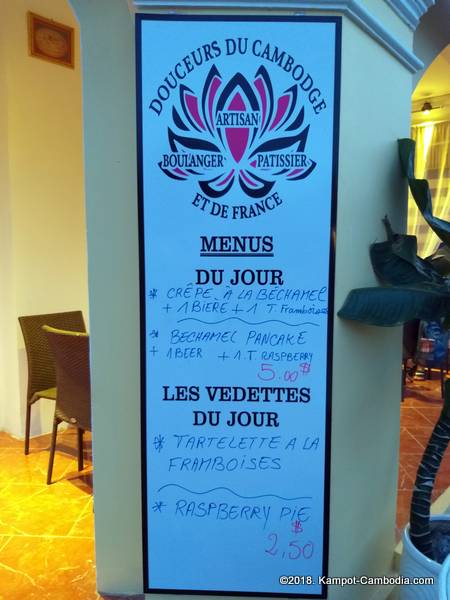 DOUCEURS DU CAMBODGE
ARTISAN
BOULANGER PATISSIER
ET DE FRANCE
MENUS
DU JOUR
* CRÊPE À LA BÉCHAMEL
+ 1 BIERE + 1 T. Framboises
* BECHAMEL PANCAKE
+ 1 BEER + 1.T. RASPBERRY
5.00$
LES VEDETTES
DU JOUR
* TARTELETTE A LA
FRAMBOISES
* RASPBERRY PIE
$
2,50
©2018. Kampot-Cambodia.com